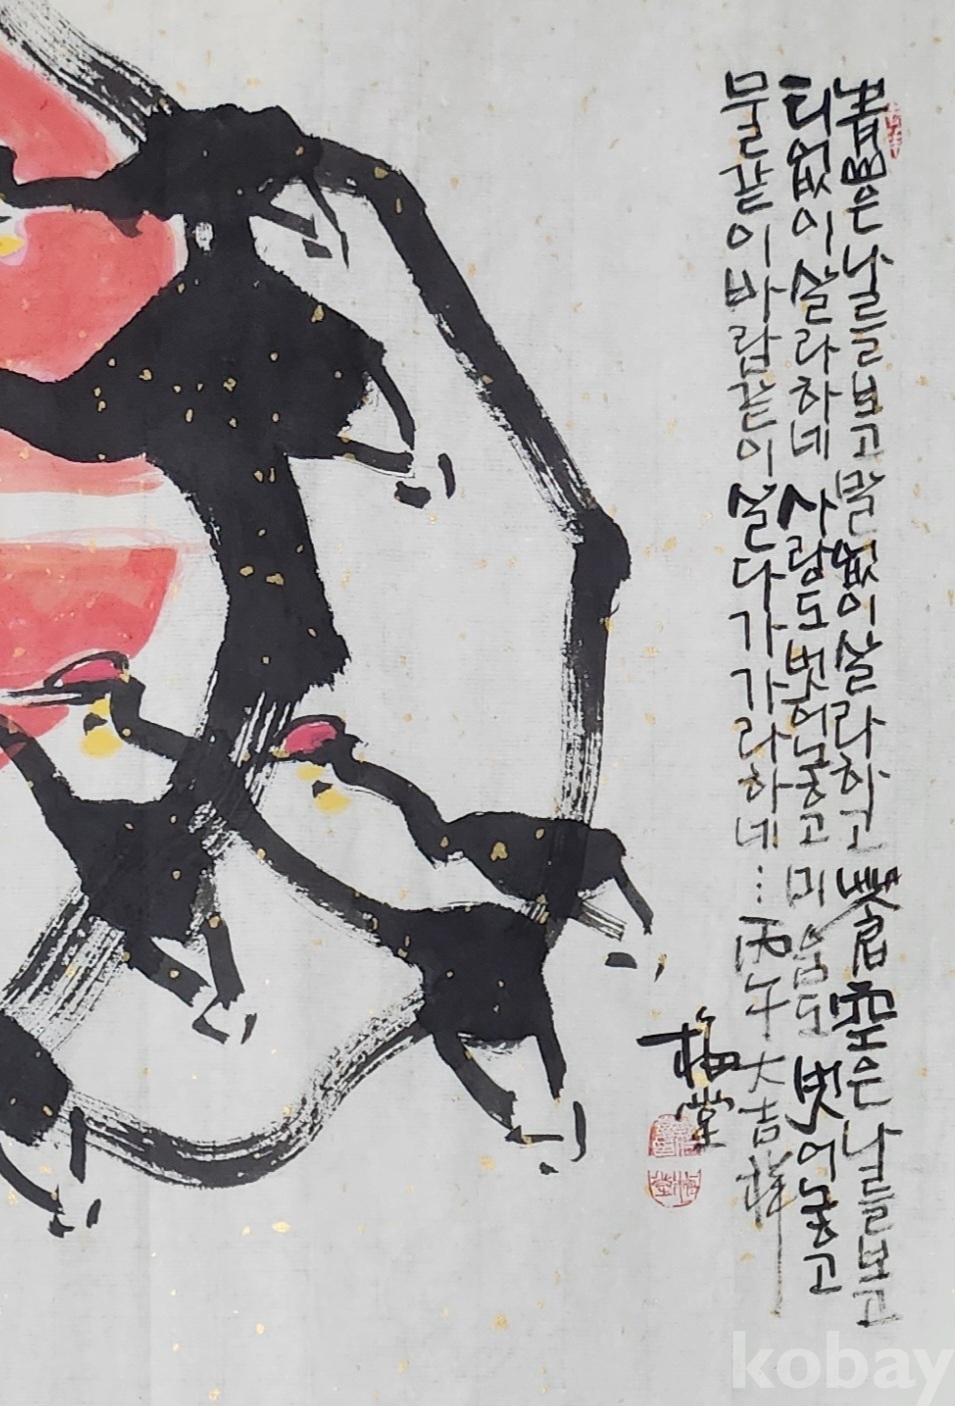 靑山은 나를보고 말없이살라하고 蒼空은 나를보고
티없이살라하네 사랑도벗어놓고 미움도 벗어놓고
물같이바람같이 살다가가라하네... 丙午 大吉祥
梅堂
kobay